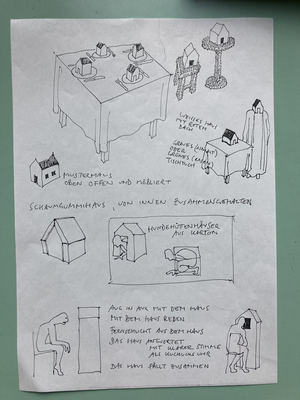 WEISSES HAUS
MIT ROTEM
DACH
GRAUES (SAMT)
ODER
GRÜNES
TISCHTUCH
MUSTERHAUS
OBEN OFFEN UND MÖBLIERT
SCHAUMGUMMIHAUS, VON INNEN ZUSAMMENGEHALTEN
HUNDEHÜTTENHÄUSER
AUS KARTON
AUG IN AUG MIT DEM HAUS
MIT DEM HAUS REDEN
FERNSEHLICHT AUS DEM HAUS
DAS HAUS ANTWORTET
MIT KLARER STIMME
ALS KUCKUCKSUHR
DAS HAUS FÄLLT ZUSAMMEN